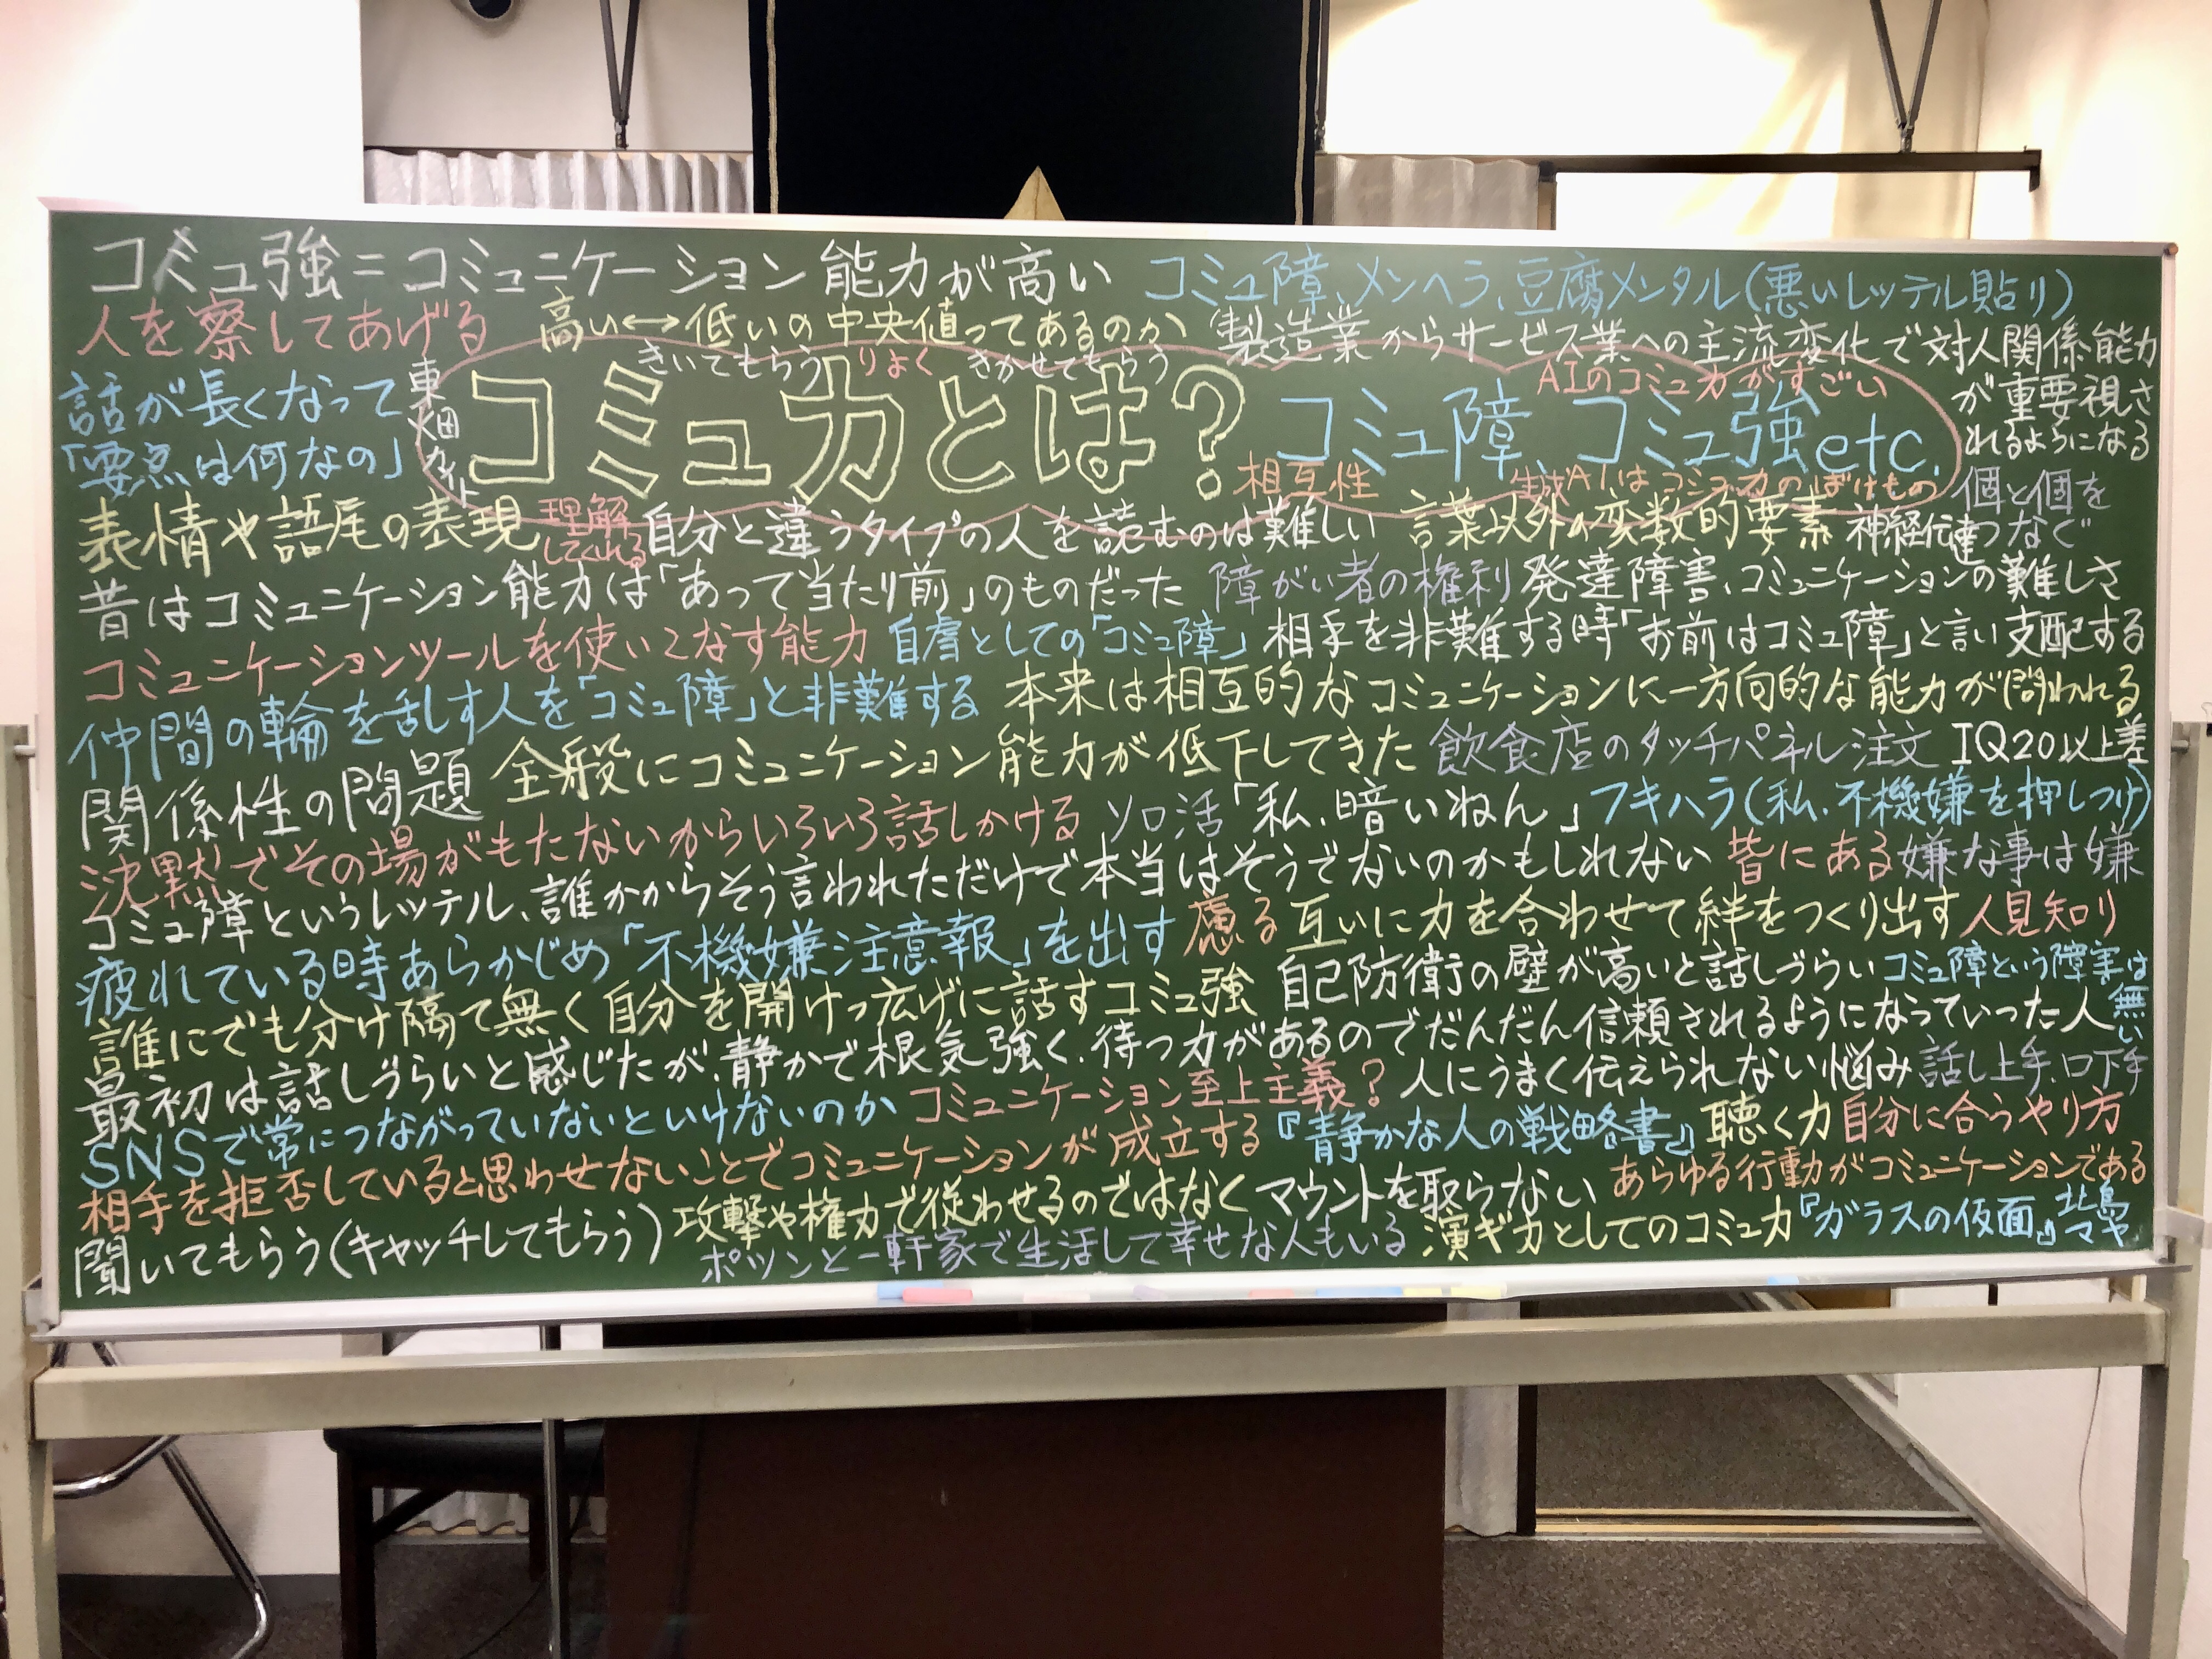 コミュ強＝コミュニケーション能力が高い コミュ障、メンヘラ、豆腐メンタル(悪いレッテル貼り)
人を察してあげる 高い↔低いの中央値ってあるのか 製造業からサービス業への主流変化で対人関係能力
が重要視さ
れるようになる
きいてもらう りょく きかせてもらう
AIのコミュ力がすごい
話が長くなって
「要点は何なの」
東畑カイト
コミュ力とは？コミュ障、コミュ強etc.
相互性 生成AIはコミュ力のばけもの
個と個を
つなぐ
表情や語尾の表現 理解
してくれる
自分と違うタイプの人を読むのは難しい 言葉以外の変数的要素 神経伝達
昔はコミュニケーション能力は「あって当たり前」のものだった 障がい者の権利 発達障害、コミュニケーションの難しさ
コミュニケーションツールを使いこなす能力 自虐としての「コミュ障」 相手を非難する時「お前はコミュ障」と言い支配する
仲間の輪を乱す人を「コミュ障」と非難する 本来は相互的なコミュニケーションに一方向的な能力が問われる
関係性の問題 全般にコミュニケーション能力が低下してきた 飲食店のタッチパネル注文 IQ20以上差
沈黙でその場がもたないからいろいろ話しかける ソロ活 「私、暗いねん」 フキハラ(私、不機嫌を押しつけ)
コミュ障というレッテル、誰かからそう言われただけで本当はそうでないのかもしれない 皆にある 嫌な事は嫌
疲れている時あらかじめ「不機嫌注意報」を出す 慮る 互いに力を合わせて絆をつくり出す 人見知り
誰にでも分け隔て無く自分を開けっ広げに話すコミュ強 自己防衛の壁が高いと話しづらい コミュ障という障害は
無い
最初は話しづらいと感じたが、静かで根気強く、待つ力があるのでだんだん信頼されるようになっていった人
SNSで常につながっていないといけないのか コミュニケーション至上主義？ 人にうまく伝えられない悩み 話し上手、口下手
相手を拒否していると思わせないことでコミュニケーションが成立する 『静かな人の戦略書』 聴く力 自分に合うやり方
聞いてもらう(キャッチしてもらう) 攻撃や権力で従わせるのではなく マウントを取らない あらゆる行動がコミュニケーションである
ポツンと一軒家で生活して幸せな人もいる 演ギ力としてのコミュ力 『ガラスの仮面』 北島
マヤ